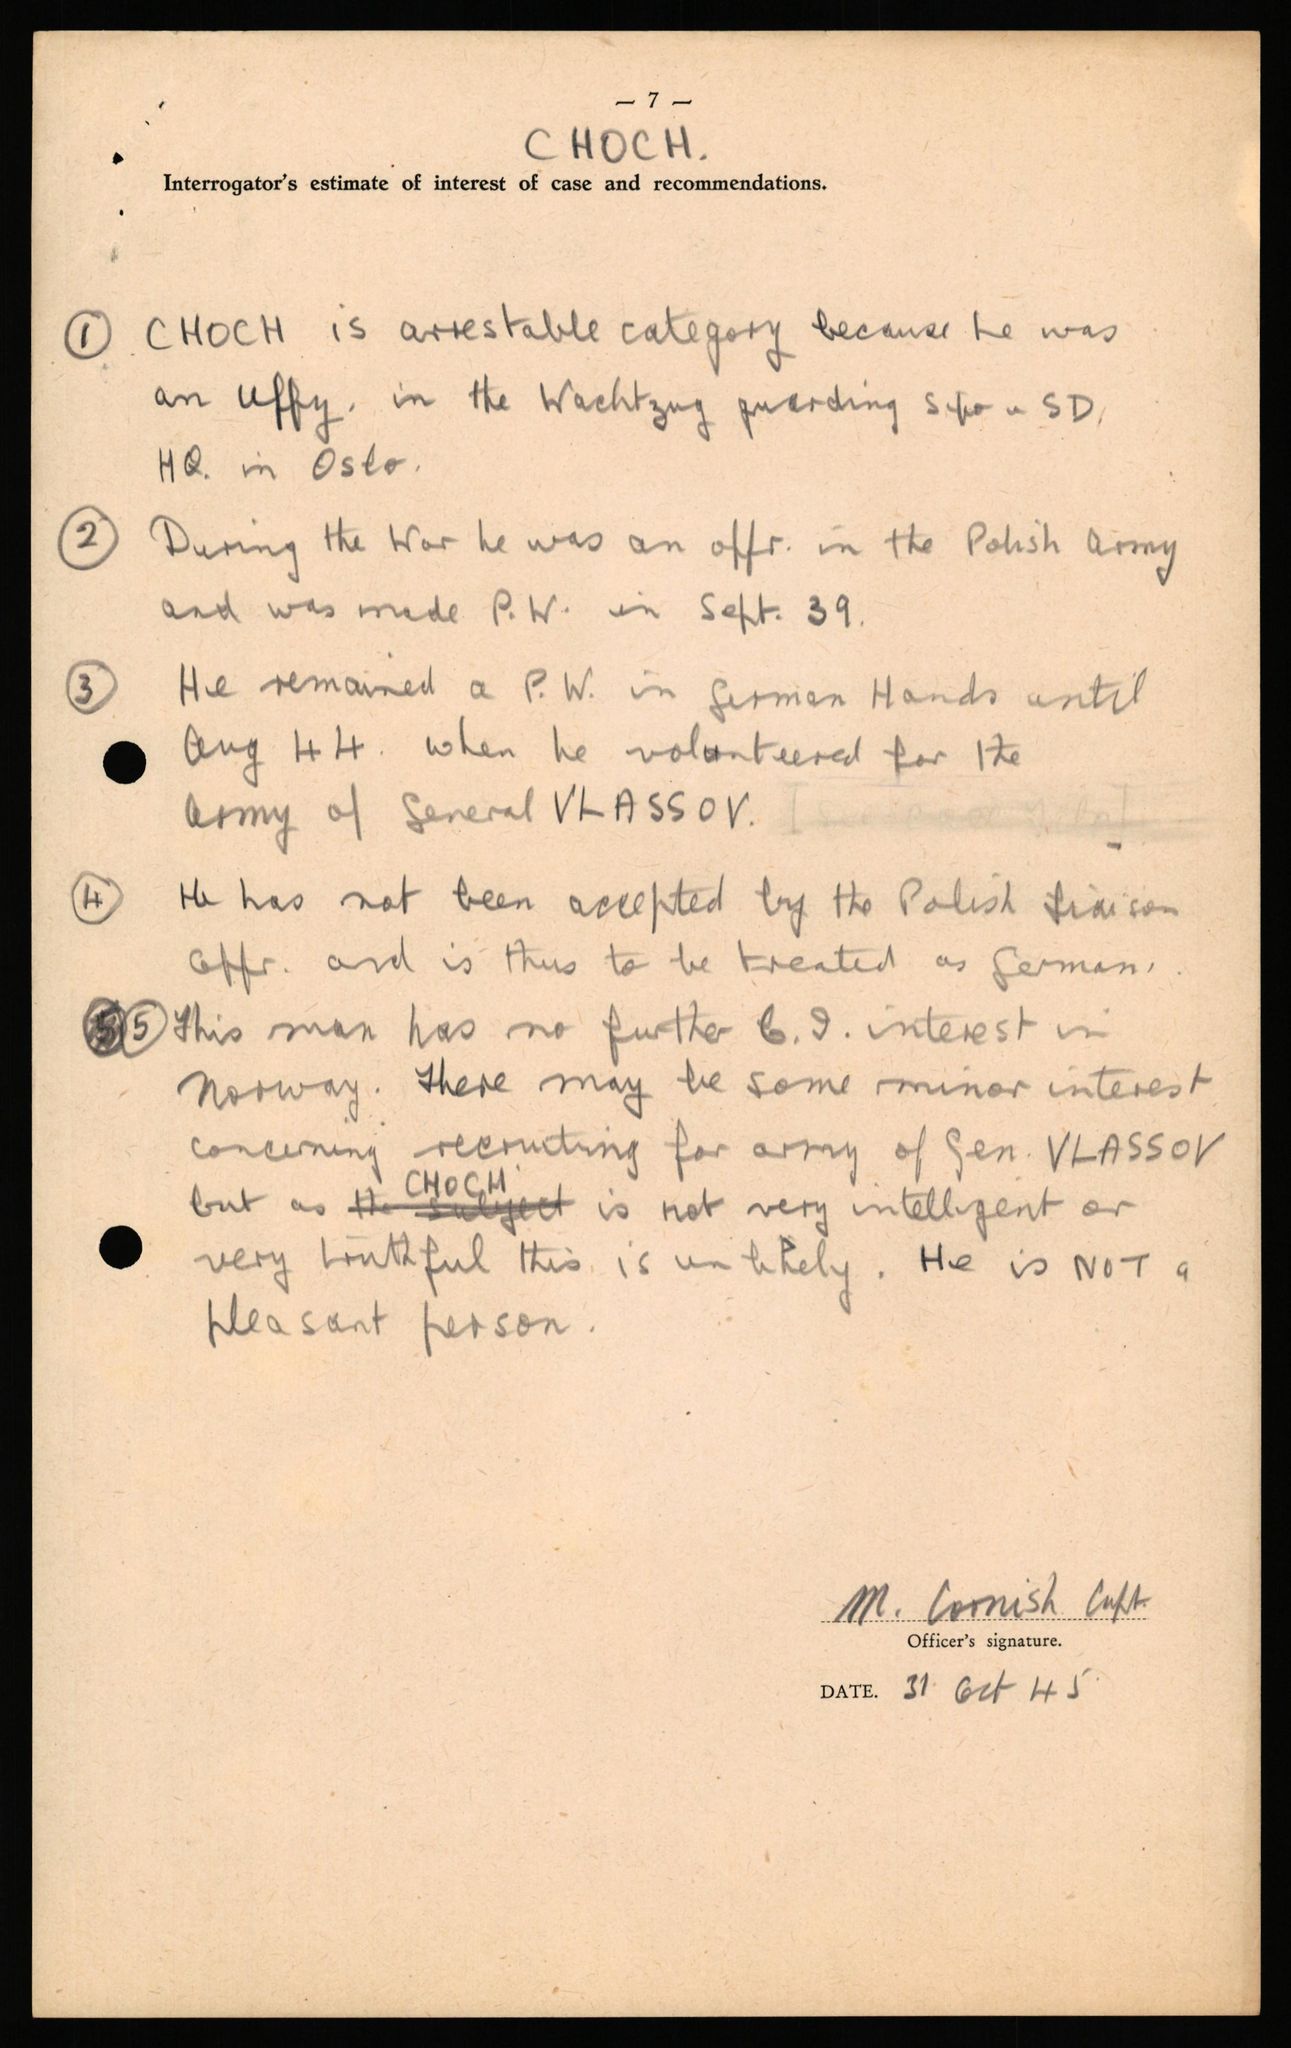 — 7 —
CHOCH.
Interrogator's estimate of interest of case and recommendations.
① CHOCH is arrestable category because he was
an Uffz. in the Wachtzug guarding Sipo u SD.
HQ. in Oslo.
② During the War he was an offr. in the Polish Army
and was made P.W. in Sept. 39.
③ He remained a P.W. in German Hands until
Aug 44. when he volunteered for the
Army of General VLASSOV.
④ He has not been accepted by the Polish Liaison
Offr. and is thus to be treated as German.
⑤ This man has no further C.I. interest in
Norway. There may be some minor interest
concerning recruiting for army of Gen. VLASSOV
CHOCH
but as the subject is not very intelligent or
very truthful this is unlikely. He is NOT a
pleasant person.
M. Cornish Capt.
Officer's signature.
DATE. 31 Oct 45